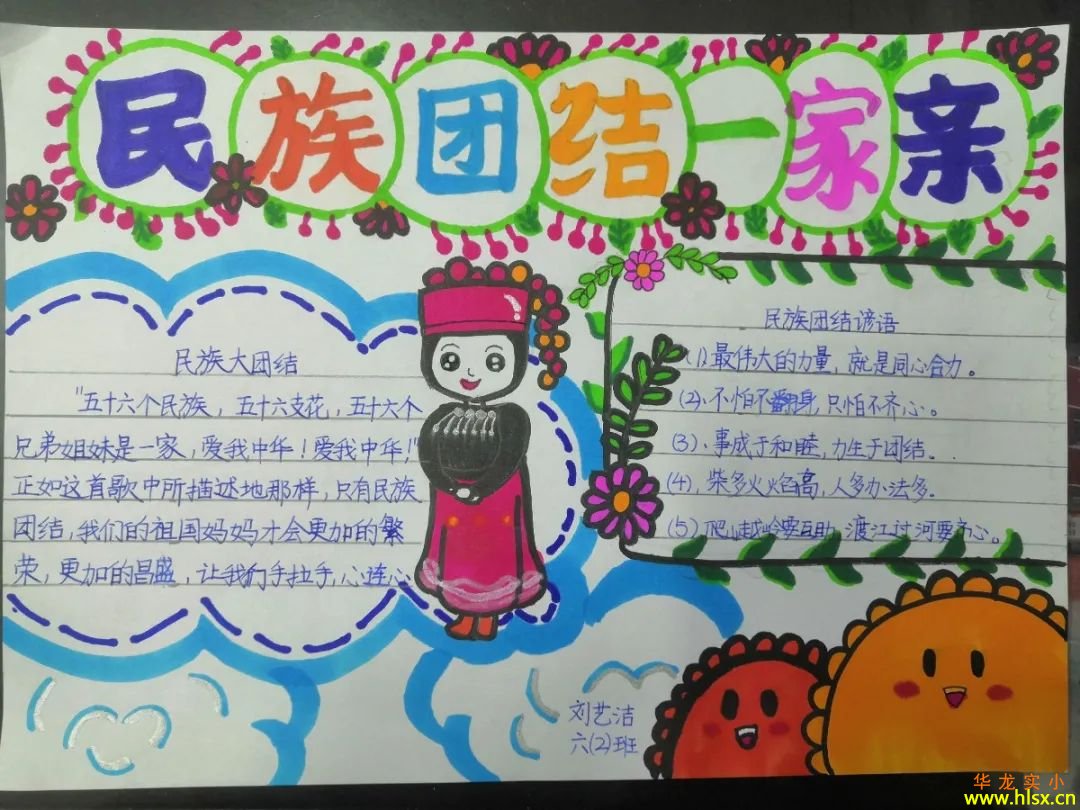 民族团结一家亲
民族大团结
"五十六个民族，五十六支花，五十六个
兄弟姐妹是一家，爱我中华！爱我中华！"
正如这首歌中所描述地那样，只有民族
团结，我们的祖国妈妈才会更加的繁
荣，更加的昌盛，让我们手拉手，心连心
民族团结谚语
(1).最伟大的力量，就是同心合力。
(2).不怕不翻身,只怕不齐心。
(3)、事成于和睦，力生于团结。
(4)，柴多火焰高，人多办法多。
(5)爬山越岭要互助，渡江过河要齐心。
刘艺洁
六(2)班
华龙实小
www.hlsx.cn